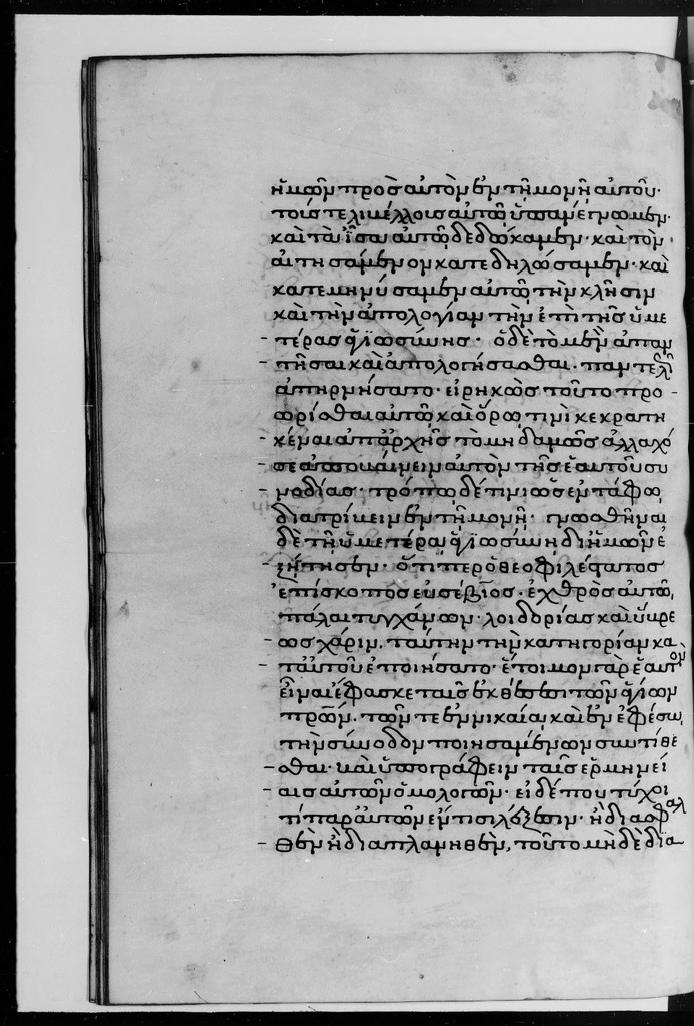 ἡμῶν πρὸς αὐτὸν ἐν τῇ μονῇ αὐτοῦ·
τοῖς τε λιμέλλοις αὐτῶ ὑπανέγνωμεν·
καὶ τὰ ἴσα αὐτῶ δεδώκαμεν· καὶ τὸν
αἰτησάμενον κατεδηλώσαμεν· καὶ
κατεμηνύσαμεν αὐτῶ τὴν κλῆσιν
καὶ τὴν ἀπολογίαν τὴν ἐπὶ τῆς ὑμε
τέρας ἁγιωσύνης· ὁ δὲ τὸ μὲν ἀπαν
τῆσαι καὶ ἀπολογήσασθαι· παντελῶς
ἀπηρνήσατο· εἰρηκὼς τοῦτο προ
ωρίσθαι αὐτῶ καὶ ὅρω τινὶ κεκρατη
κέναι ἀπαρχῆς τὸ μηδαμῶς ἀλλαχό
σε ἀποκάμνειν αὐτὸν τῆς ἑαυτοῦ συ
νοδίας· τρόπω δέ τινι ὡς ἐν τάφω
διατρίβειν ἐν τῇ μονῇ· γνωσθῆναι
δὲ τῇ ὑμετέρα ἁγιωσύνη δι ἡμῶν ἐ
ζήτησεν· ὅτι περ ὁ θεοφιλέστατος
ἐπίσκοπος εὐσέβιος· ἐχθρὸς αὐτῶ
πάλαι τυγχάνων· λοιδορίας καὶ ὕβρε
ως χάριν· ταύτην τὴν κατηγορίαν κα
τ αὐτοῦ ἐποιήσατο· ἕτοιμον γὰρ ἑαυτὸν
εἶναι ἔφασκε ταῖς ἐκθέσεσι τῶν ἁγίων
πρων· τῶν τε ἐν νικαία καὶ ἐν ἐφέσω
τὴν σύνοδον ποιησαμένων συντίθε
σθαι· καὶ ὑπογράφειν ταῖς ἑρμηνεί
αις αὐτῶν ὁμολογῶν· εἰ δέ που τύχοι
τί παρ αὐτῶν ἔν τισι λέξεσιν· ἢ διασφαλ
θὲν ἢ διαπλανηθὲν, τοῦτο μὴδὲ δια